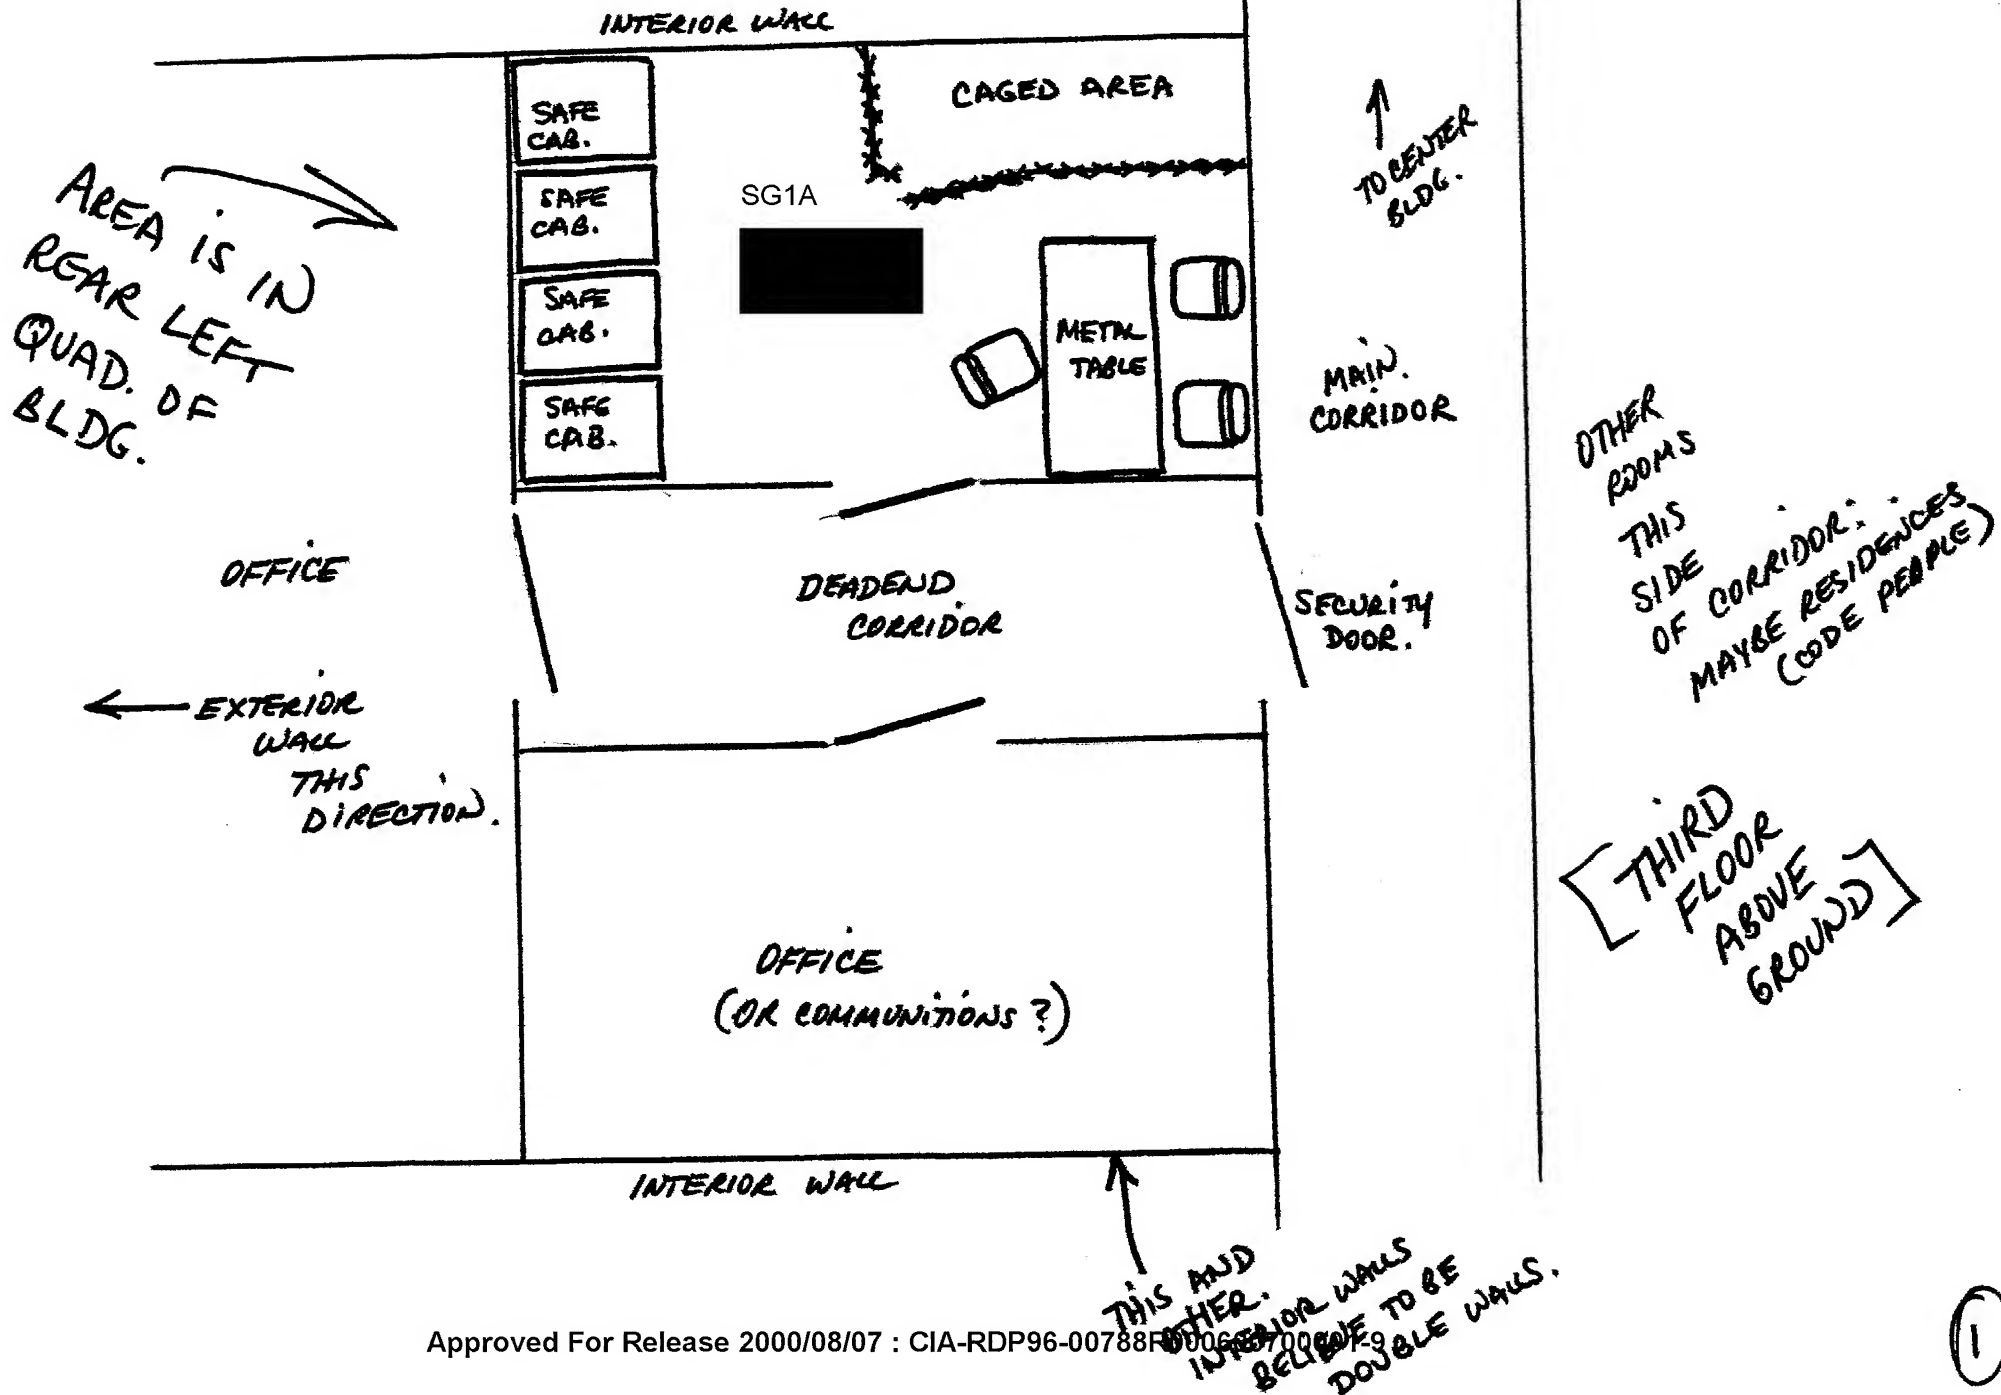 INTERIOR WALL
SAFE
CAB.
SAFE
CAB.
SAFE
CAB.
SAFE
CAB.
SG1A
CAGED AREA
METAL
TABLE
TO CENTER
BLDG.
MAIN.
CORRIDOR
AREA IS IN
REAR LEFT
QUAD. OF
BLDG.
OTHER
ROOMS
THIS
SIDE
OF CORRIDOR:
MAYBE RESIDENCES
(CODE PEOPLE)
OFFICE
DEADEND
CORRIDOR
SECURITY
DOOR.
EXTERIOR
WALL
THIS
DIRECTION.
[THIRD
FLOOR
ABOVE
GROUND]
OFFICE
(OR COMMUNITIONS?)
INTERIOR WALL
THIS AND
OTHER.
INTERIOR WALLS
BELIEVE TO BE
DOUBLE WALLS.
Approved For Release 2000/08/07 : CIA-RDP96-00788R
1